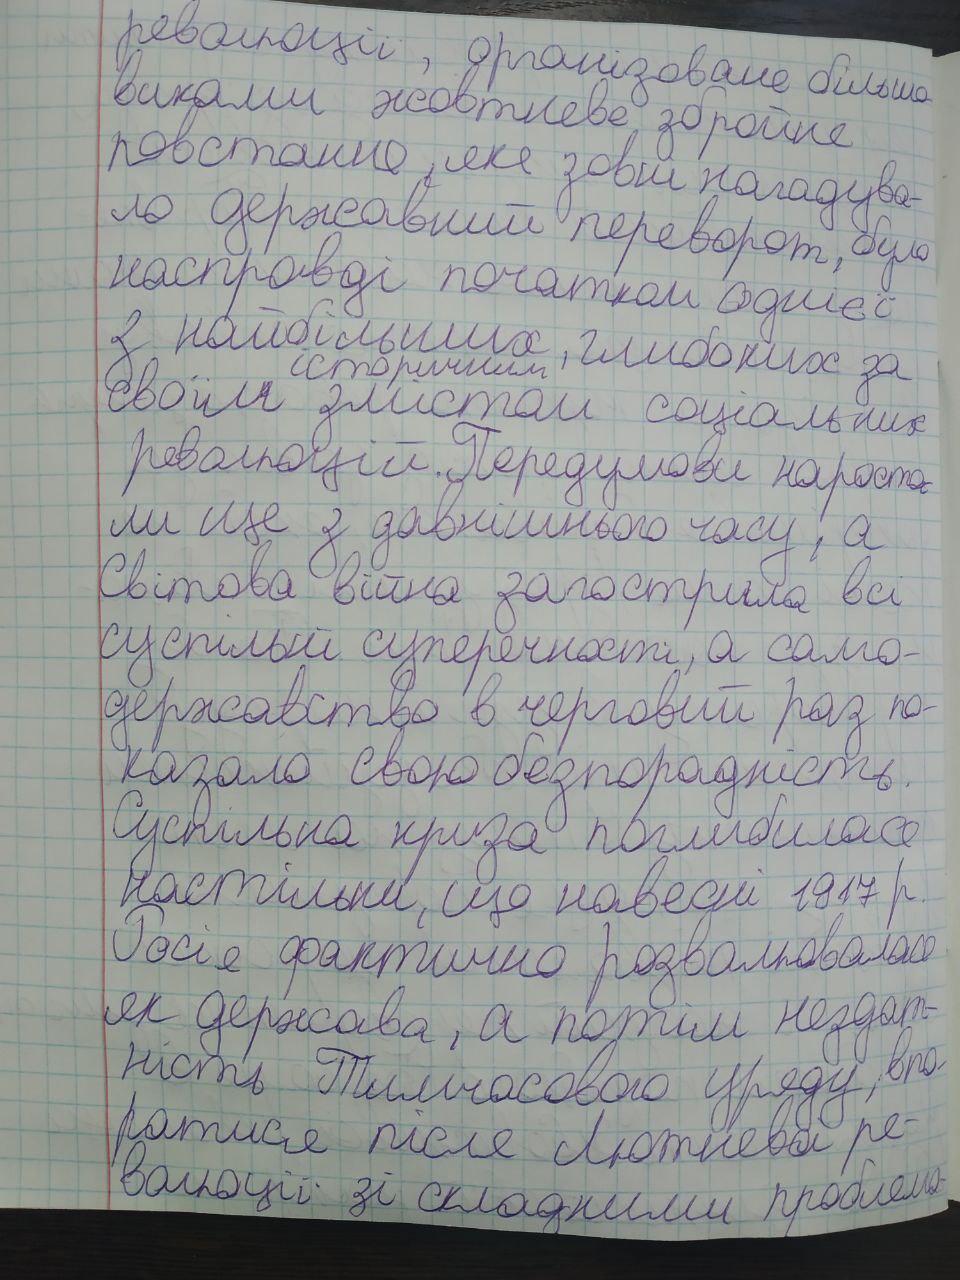 революції, організоване більшо-
виками жовтневе збройне
повстання, яке зовні нагадува-
ло державний переворот, було
насправді початком однієї
з найбільших, глибоких за
історичним
своїм змістом соціальних
революцій. Передумови нароста-
ли ще з давнішнього часу, а
Світова війна загострила всі
суспільні суперечності, а само-
державство в черговий раз по-
казало свою безпорадність.
Суспільна криза поглибилася
настільки, що навесні 1917 р.
Росія фактично розвалювалася
як держава, а потім нездат-
ність Тимчасового уряду, впо-
ратися після Лютневої ре-
волюції зі складними проблема-